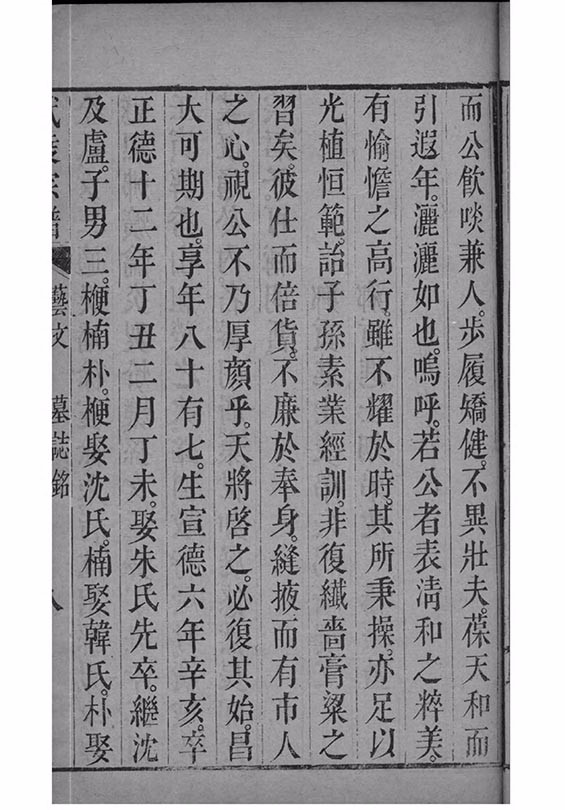 而公飲啖兼人。步履矯健。不異壯夫。葆天和而
引遐年。灑灑如也。嗚呼。若公者表淸和之粹美。
有愉憺之高行。雖不耀於時。其所秉操。亦足以
光植恒範。詒子孫素業經訓。非復纖嗇膏粱之
習矣。彼仕而倍貨。不廉於奉身。縫掖而有市人
之心。視公不乃厚顔乎。天將啓之。必復其始。昌
大可期也。享年八十有七。生宣德六年辛亥。卒
正德十二年丁丑二月丁未。娶朱氏先卒。繼沈
及盧。子男三。楩楠朴。楩娶沈氏。楠娶韓氏。朴娶
藝文 墓誌銘